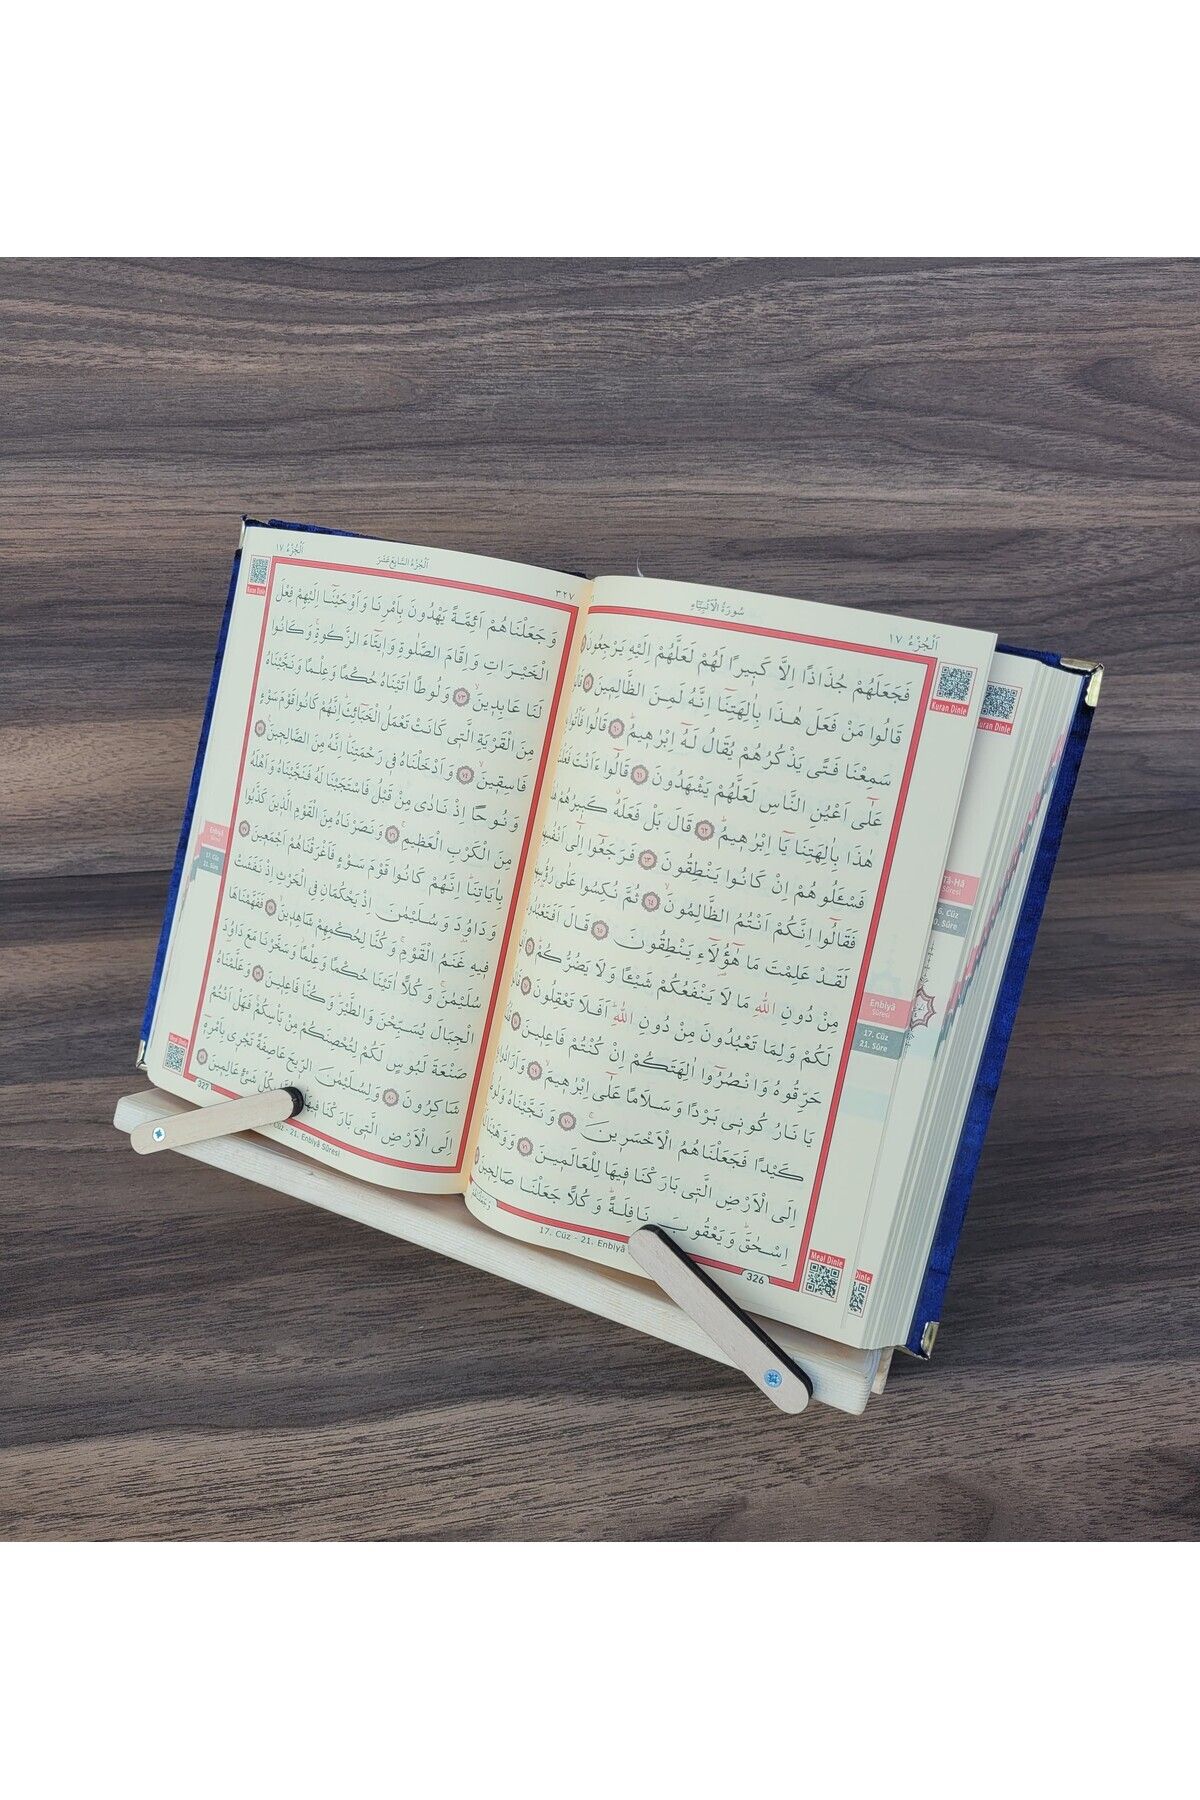 اَلْجُزْءُ ١٧
سُورَةُ الْاَنْبِيَاءِ
Kuran Dinle
فَجَعَلَهُمْ جُذَاذًا اِلَّا كَبِيرًا لَهُمْ لَعَلَّهُمْ اِلَيْهِ يَرْجِعُونَ
قَالُوا مَنْ فَعَلَ هٰذَا بِاٰلِهَتِنَٓا اِنَّهُ لَمِنَ الظَّالِمِينَ ٥٩
سَمِعْنَا فَتًى يَذْكُرُهُمْ يُقَالُ لَهُٓ اِبْرٰهِيمُ ٦٠ قَالُوا فَأْتُوا
عَلٰٓى اَعْيُنِ النَّاسِ لَعَلَّهُمْ يَشْهَدُونَ ٦١ قَالُٓوا ءَاَنْتَ فَعَلْتَ
هٰذَا بِاٰلِهَتِنَا يَٓا اِبْرٰهِيمُ ٦٢ قَالَ بَلْ فَعَلَهُ كَبِيرُهُمْ
فَسْـَٔلُوهُمْ اِنْ كَانُوا يَنْطِقُونَ ٦٣ فَرَجَعُٓوا اِلٰٓى اَنْفُسِهِمْ
فَقَالُٓوا اِنَّكُمْ اَنْتُمُ الظَّالِمُونَ ٦٤ ثُمَّ نُكِسُوا عَلٰى رُؤُسِهِمْ
لَقَدْ عَلِمْتَ مَا هٰٓؤُ۬لَٓاءِ يَنْطِقُونَ ٦٥ قَالَ اَفَتَعْبُدُونَ
مِنْ دُونِ اللّٰهِ مَا لَا يَنْفَعُكُمْ شَيْـًٔا وَلَا يَضُرُّكُمْ
لَكُمْ وَلِمَا تَعْبُدُونَ مِنْ دُونِ اللّٰهِ اَفَلَا تَعْقِلُونَ
حَرِّقُوهُ وَانْصُرُٓوا اٰلِهَتَكُمْ اِنْ كُنْتُمْ فَاعِلِينَ
يَا نَارُ كُونِي بَرْدًا وَسَلَامًا عَلٰٓى اِبْرٰهِيمَ ٦٩ وَاَرَادُوا
كَيْدًا فَجَعَلْنَاهُمُ الْاَخْسَرِينَ ٧٠ وَنَجَّيْنَاهُ وَلُوطًا
اِلَى الْاَرْضِ الَّتِي بَارَكْنَا فِيهَا لِلْعَالَمِينَ ٧١ وَوَهَبْنَا
اِسْحٰقَ وَيَعْقُوبَ نَافِلَةً وَكُلًّا جَعَلْنَا صَالِحِينَ
17. Cüz - 21. Enbiyâ
326
Meal Dinle
Enbiyâ
Sûresi
17. Cüz
21. Sûre
اَلْجُزْءُ ١٧
اَلْجُزْءُ السَّابِعَ عَشَرَ
٣٢٧
Kuran Dinle
وَجَعَلْنَاهُمْ اَئِمَّةً يَهْدُونَ بِاَمْرِنَا وَاَوْحَيْنَٓا اِلَيْهِمْ فِعْلَ
الْخَيْرَاتِ وَاِقَامَ الصَّلٰوةِ وَاِيتَٓاءَ الزَّكٰوةِ وَكَانُوا
لَنَا عَابِدِينَ ٧٣ وَلُوطًا اٰتَيْنَاهُ حُكْمًا وَعِلْمًا وَنَجَّيْنَاهُ
مِنَ الْقَرْيَةِ الَّتِي كَانَتْ تَعْمَلُ الْخَبَٓائِثَ اِنَّهُمْ كَانُوا قَوْمَ سَوْءٍ
فَاسِقِينَ ٧٤ وَاَدْخَلْنَاهُ فِي رَحْمَتِنَا اِنَّهُ مِنَ الصَّالِحِينَ ٧٥
وَنُوحًا اِذْ نَادٰى مِنْ قَبْلُ فَاسْتَجَبْنَا لَهُ فَنَجَّيْنَاهُ وَاَهْلَهُ
مِنَ الْكَرْبِ الْعَظِيمِ ٧٦ وَنَصَرْنَاهُ مِنَ الْقَوْمِ الَّذِينَ كَذَّبُوا
بِاٰيَاتِنَا اِنَّهُمْ كَانُوا قَوْمَ سَوْءٍ فَاَغْرَقْنَاهُمْ اَجْمَعِينَ ٧٧
وَدَاوُدَ وَسُلَيْمٰنَ اِذْ يَحْكُمَانِ فِي الْحَرْثِ اِذْ نَفَشَتْ
فِيهِ غَنَمُ الْقَوْمِ وَكُنَّا لِحُكْمِهِمْ شَاهِدِينَ ٧٨ فَفَهَّمْنَاهَا
سُلَيْمٰنَ وَكُلًّا اٰتَيْنَا حُكْمًا وَعِلْمًا وَسَخَّرْنَا مَعَ دَاوُدَ
الْجِبَالَ يُسَبِّحْنَ وَالطَّيْرَ وَكُنَّا فَاعِلِينَ ٧٩ وَعَلَّمْنَاهُ
صَنْعَةَ لَبُوسٍ لَكُمْ لِتُحْصِنَكُمْ مِنْ بَأْسِكُمْ فَهَلْ اَنْتُمْ
شَاكِرُونَ ٨٠ وَلِسُلَيْمٰنَ الرِّيحَ عَاصِفَةً تَجْرِي بِاَمْرِهِ
اِلَى الْاَرْضِ الَّتِي بَارَكْنَا فِيهَا بِكُلِّ شَيْءٍ عَالِمِينَ
Cüz - 21. Enbiyâ Sûresi
327
Meal Dinle
Enbiyâ
Sûresi
17. Cüz
21. Sûre
uran Dinle
Tâ-Hâ
Sûresi
6. Cüz
0. Sûre
Dinle